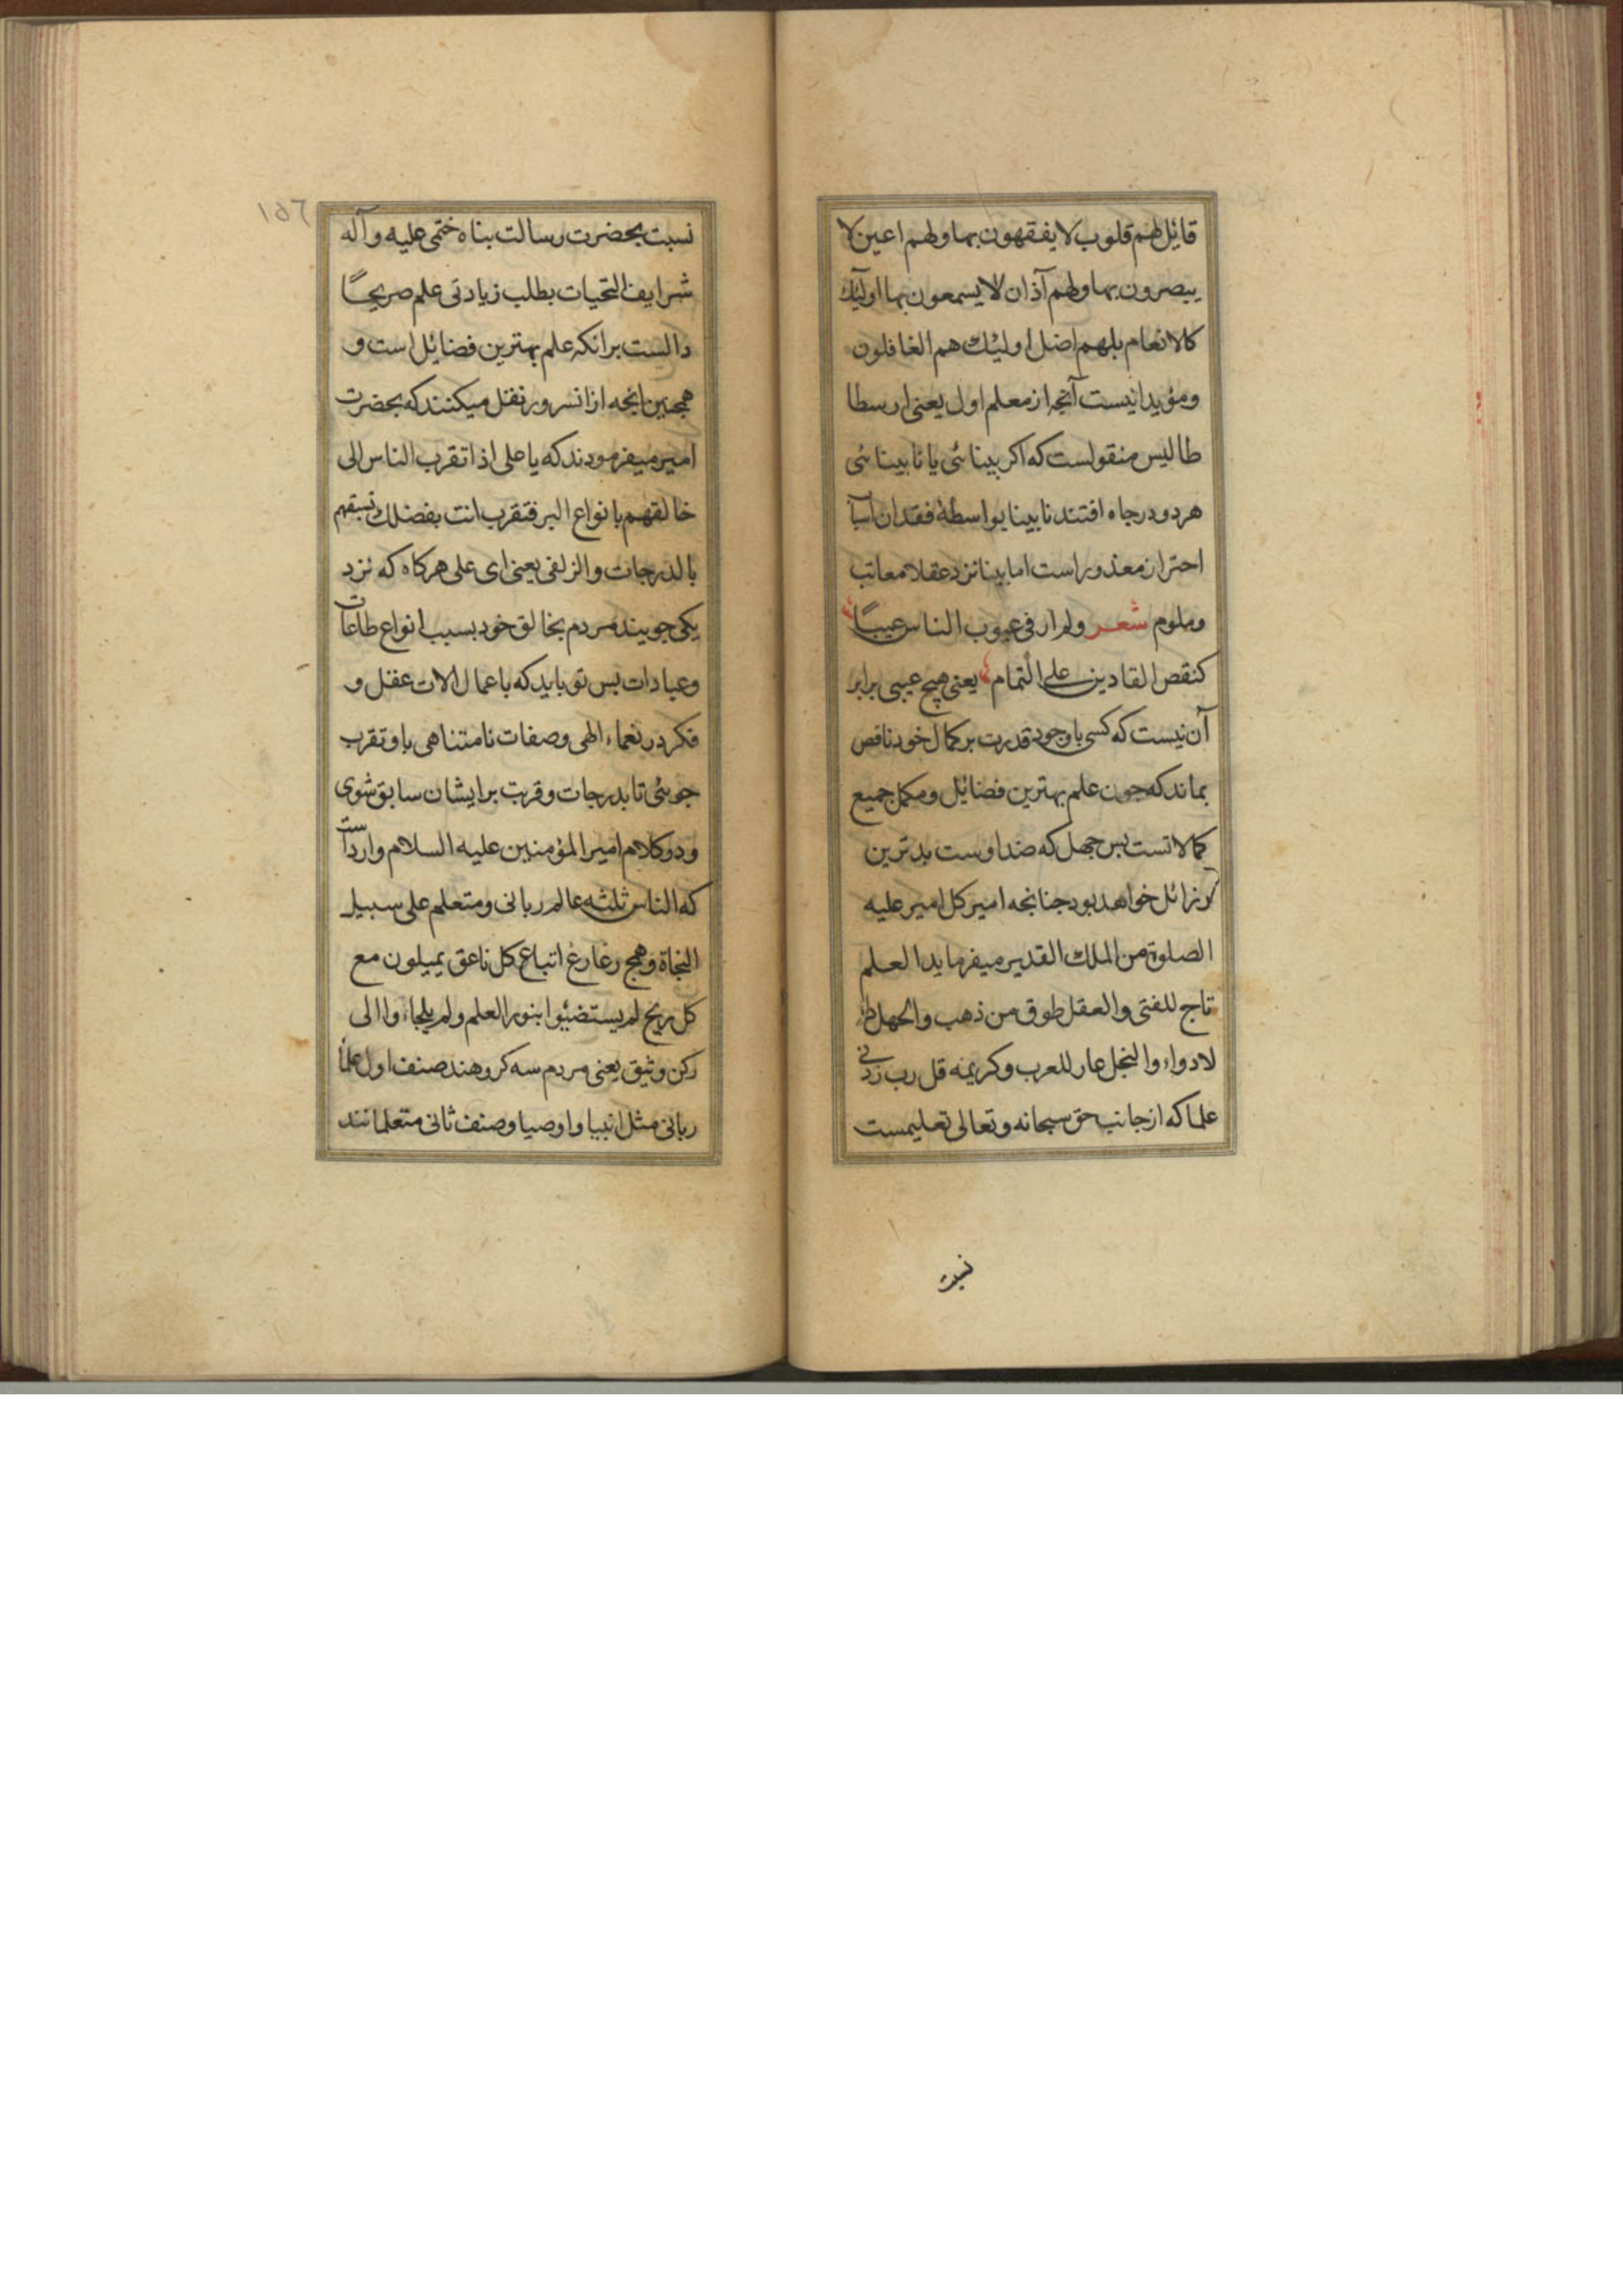 قائل لهم قلوب لا یفقهون بها ولهم اعین لا
یبصرون بها ولهم آذان لا یسمعون بها اولئک
کالانعام بلهم اضل اولئک هم الغافلون
ومؤید اینست آنچه از معلم اول یعنی ارسطا
طالیس منقولست که اکر بینائی یا نابینائی
هر دو در چاه افتند نابینا بواسطهٔ فقدان اسباب
احتراز معذور است اما بینا نزد عقلا معاتب
وملوم شعر ولم ار فی عیوب الناس عیباً
کنقص القادرین علی التمام یعنی هیچ عیبی برابر
آن نیست که کسی با وجود قدرت بر کمال خود ناقص
بماند که جون علم بهترین فضائل ومکمل جمیع
کمالاتست بس جهل که ضد اوست بدترین
رزائل خواهد بود جنانجه امیر کل امیر علیه
الصلوة من الملک القدیر میفرماید العلم
تاج للفتی والعقل طوق من ذهب والجهل داء
لا دواء والبخل عار للعرب وکریمه قل رب زدنی
علما که از جانب حق سبحانه وتعالی تعلیمست
نسبت
١٥٦
نسبت بحضرت رسالت بناه ختمی علیه وآله
شرایف التحیات بطلب زیادتی علم صریحاً
دالست بر انکه علم بهترین فضائل است و
همجنین انجه از انسرور نقل میکنند که بحضرت
امیر میفرمودند که یا علی اذا تقرب الناس الی
خالقهم بانواع البر فتقرب انت بفضلک تسبقهم
بالدرجات والزلفی یعنی ای علی هرکاه که نزد
یکی جویند مردم بخالق خود بسبب انواع طاعات
وعبادات بس تو باید که باعمال الات عقل و
فکر در نعماء الهی وصفات نامتناهی باو تقرب
جوئی تا بدرجات وقربت بر ایشان سابق شوی
ودر کلام امیر المؤمنین علیه السلام وارد است
که الناس ثلثه عالم ربانی ومتعلم علی سبیل
النجاة وهمج رعارغ اتباع کل ناعق یمیلون مع
کل ریح لم یستضیئوا بنور العلم ولم یلجاءوا الی
رکن وثیق یعنی مردم سه کروهند صنف اول علماء
ربانی مثل انبیا واوصیا وصنف ثانی متعلمانند